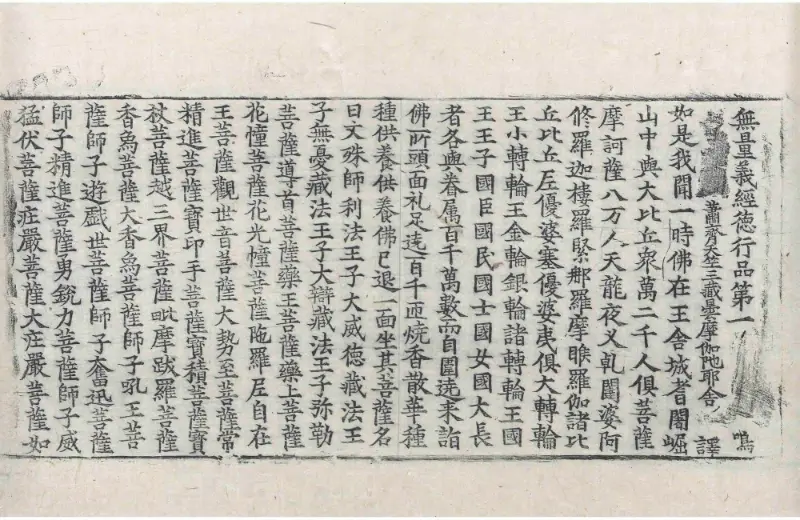 無量義經德行品第一 鳴
蕭齊天竺三藏曇摩伽陁耶舍 譯
如是我聞一時佛在王舍城耆闍崛
山中與大比丘衆萬二千人俱菩薩
摩訶薩八万人天龍夜叉乹闥婆阿
修羅迦樓羅緊那羅摩睺羅伽諸比
丘比丘尼優婆塞優婆夷俱大轉輪
王小轉輪王金輪銀輪諸轉輪王國
王王子國臣國民國士國女國大長
者各與眷属百千萬數而自圍遶来詣
佛所頭面礼足遶百千匝燒香散華種
種供養供養佛已退一面坐其菩薩名
曰文殊師利法王子大威德藏法王
子無憂藏法王子大辯藏法王子弥勒
菩薩導首菩薩藥王菩薩藥上菩薩
花幢菩薩花光幢菩薩陁羅尼自在
王菩薩觀世音菩薩大勢至菩薩常
精進菩薩寶印手菩薩寶積菩薩寶
杖菩薩越三界菩薩毗摩跋羅菩薩
香烏菩薩大香烏菩薩師子吼王菩
薩師子遊戲世菩薩師子奮迅菩薩
師子精進菩薩勇銳力菩薩師子威
猛伏菩薩莊嚴菩薩大莊嚴菩薩如